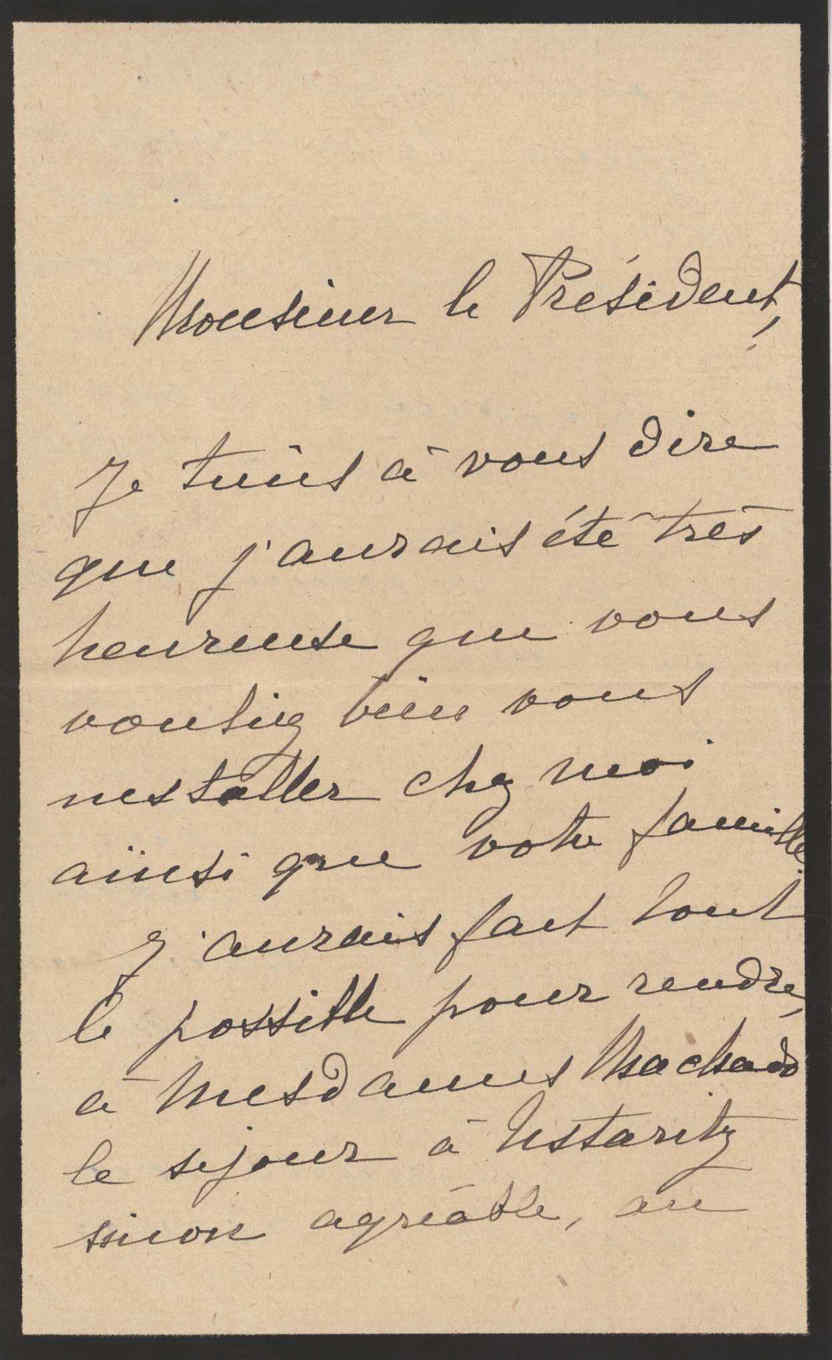 Monsieur le Président,
Je tiens à vous dire
que j'aurais été très
heureuse que vous
vouliez bien vous
installer chez moi
ainsi que votre famille.
J'aurais fait tout
le possible pour rendre,
à Mesdames Machado
le séjour à Ustaritz
sinon agréable, au